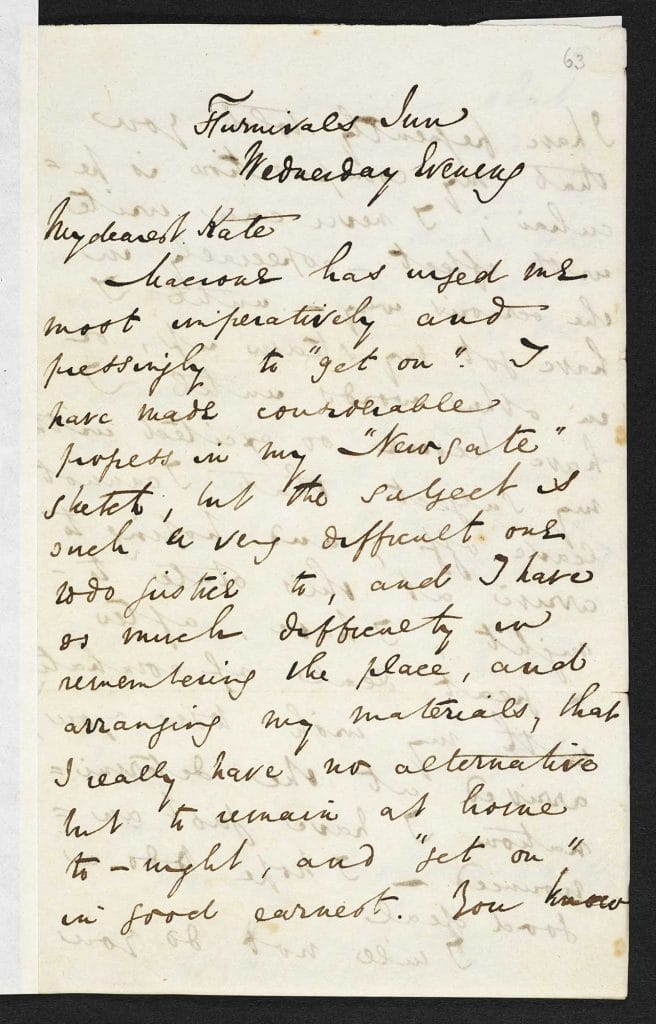 63
Furnivals Inn
Wednesday Evening
My dearest Kate
Macrone has urged me
most imperatively and
pressingly to "get on". I
have made considerable
progress in my "Newgate"
sketch, but the subject is
such a very difficult one
to do justice to, and I have
so much difficulty in
remembering the place, and
arranging my materials, that
I really have no alternative
but to remain at home
to-night, and "get on"
in good earnest. You know